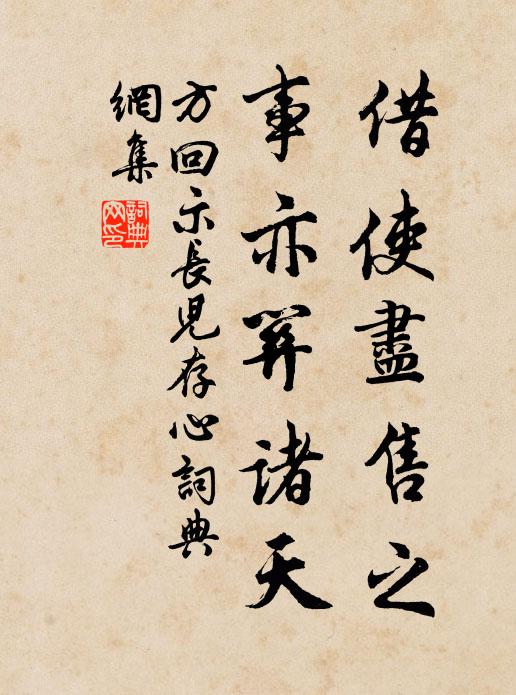 借使盡售之
事亦關諸天
方回示長兒存心詞典
網集
詞典
网印